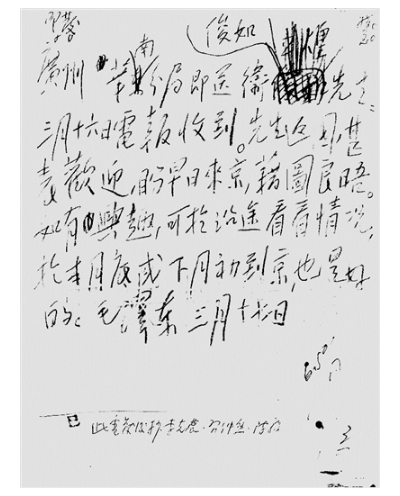 廣州 華南分局即送衛俊如先生:
三月十六日電報收到。先生返國,甚
表歡迎,盼早日來京,藉圖良晤。
如有興趣,可於沿途看看情況,
於本月底或下月初到京,也是好
的。毛澤東 三月十七日
此電發後抄